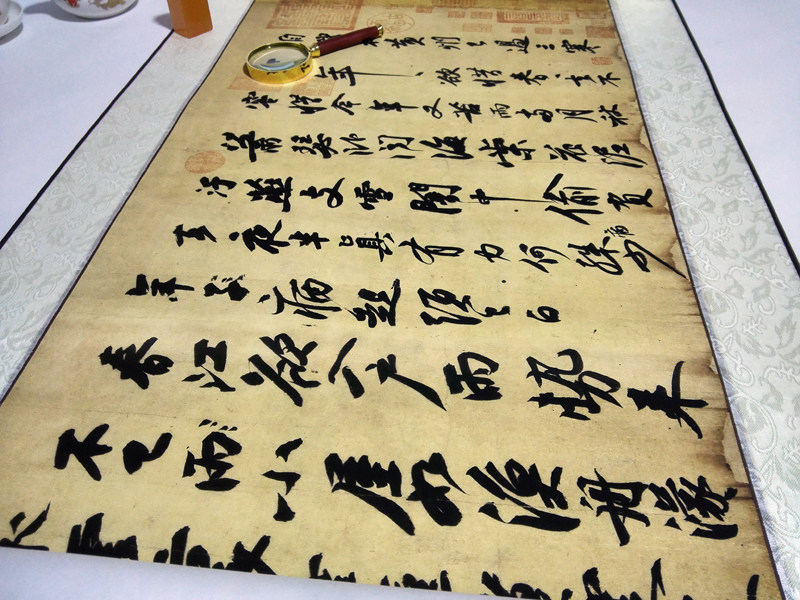 自 來黃州已過三寒
年々欲惜春々去不
容惜今年又苦雨兩月秋
蕭瑟卧聞海棠花泥
汙燕支雪闇中偷負
去夜半真有力何殊病少
年子病起頭已白
春江欲入戶雨勢來
不已雨小屋如漁舟濛